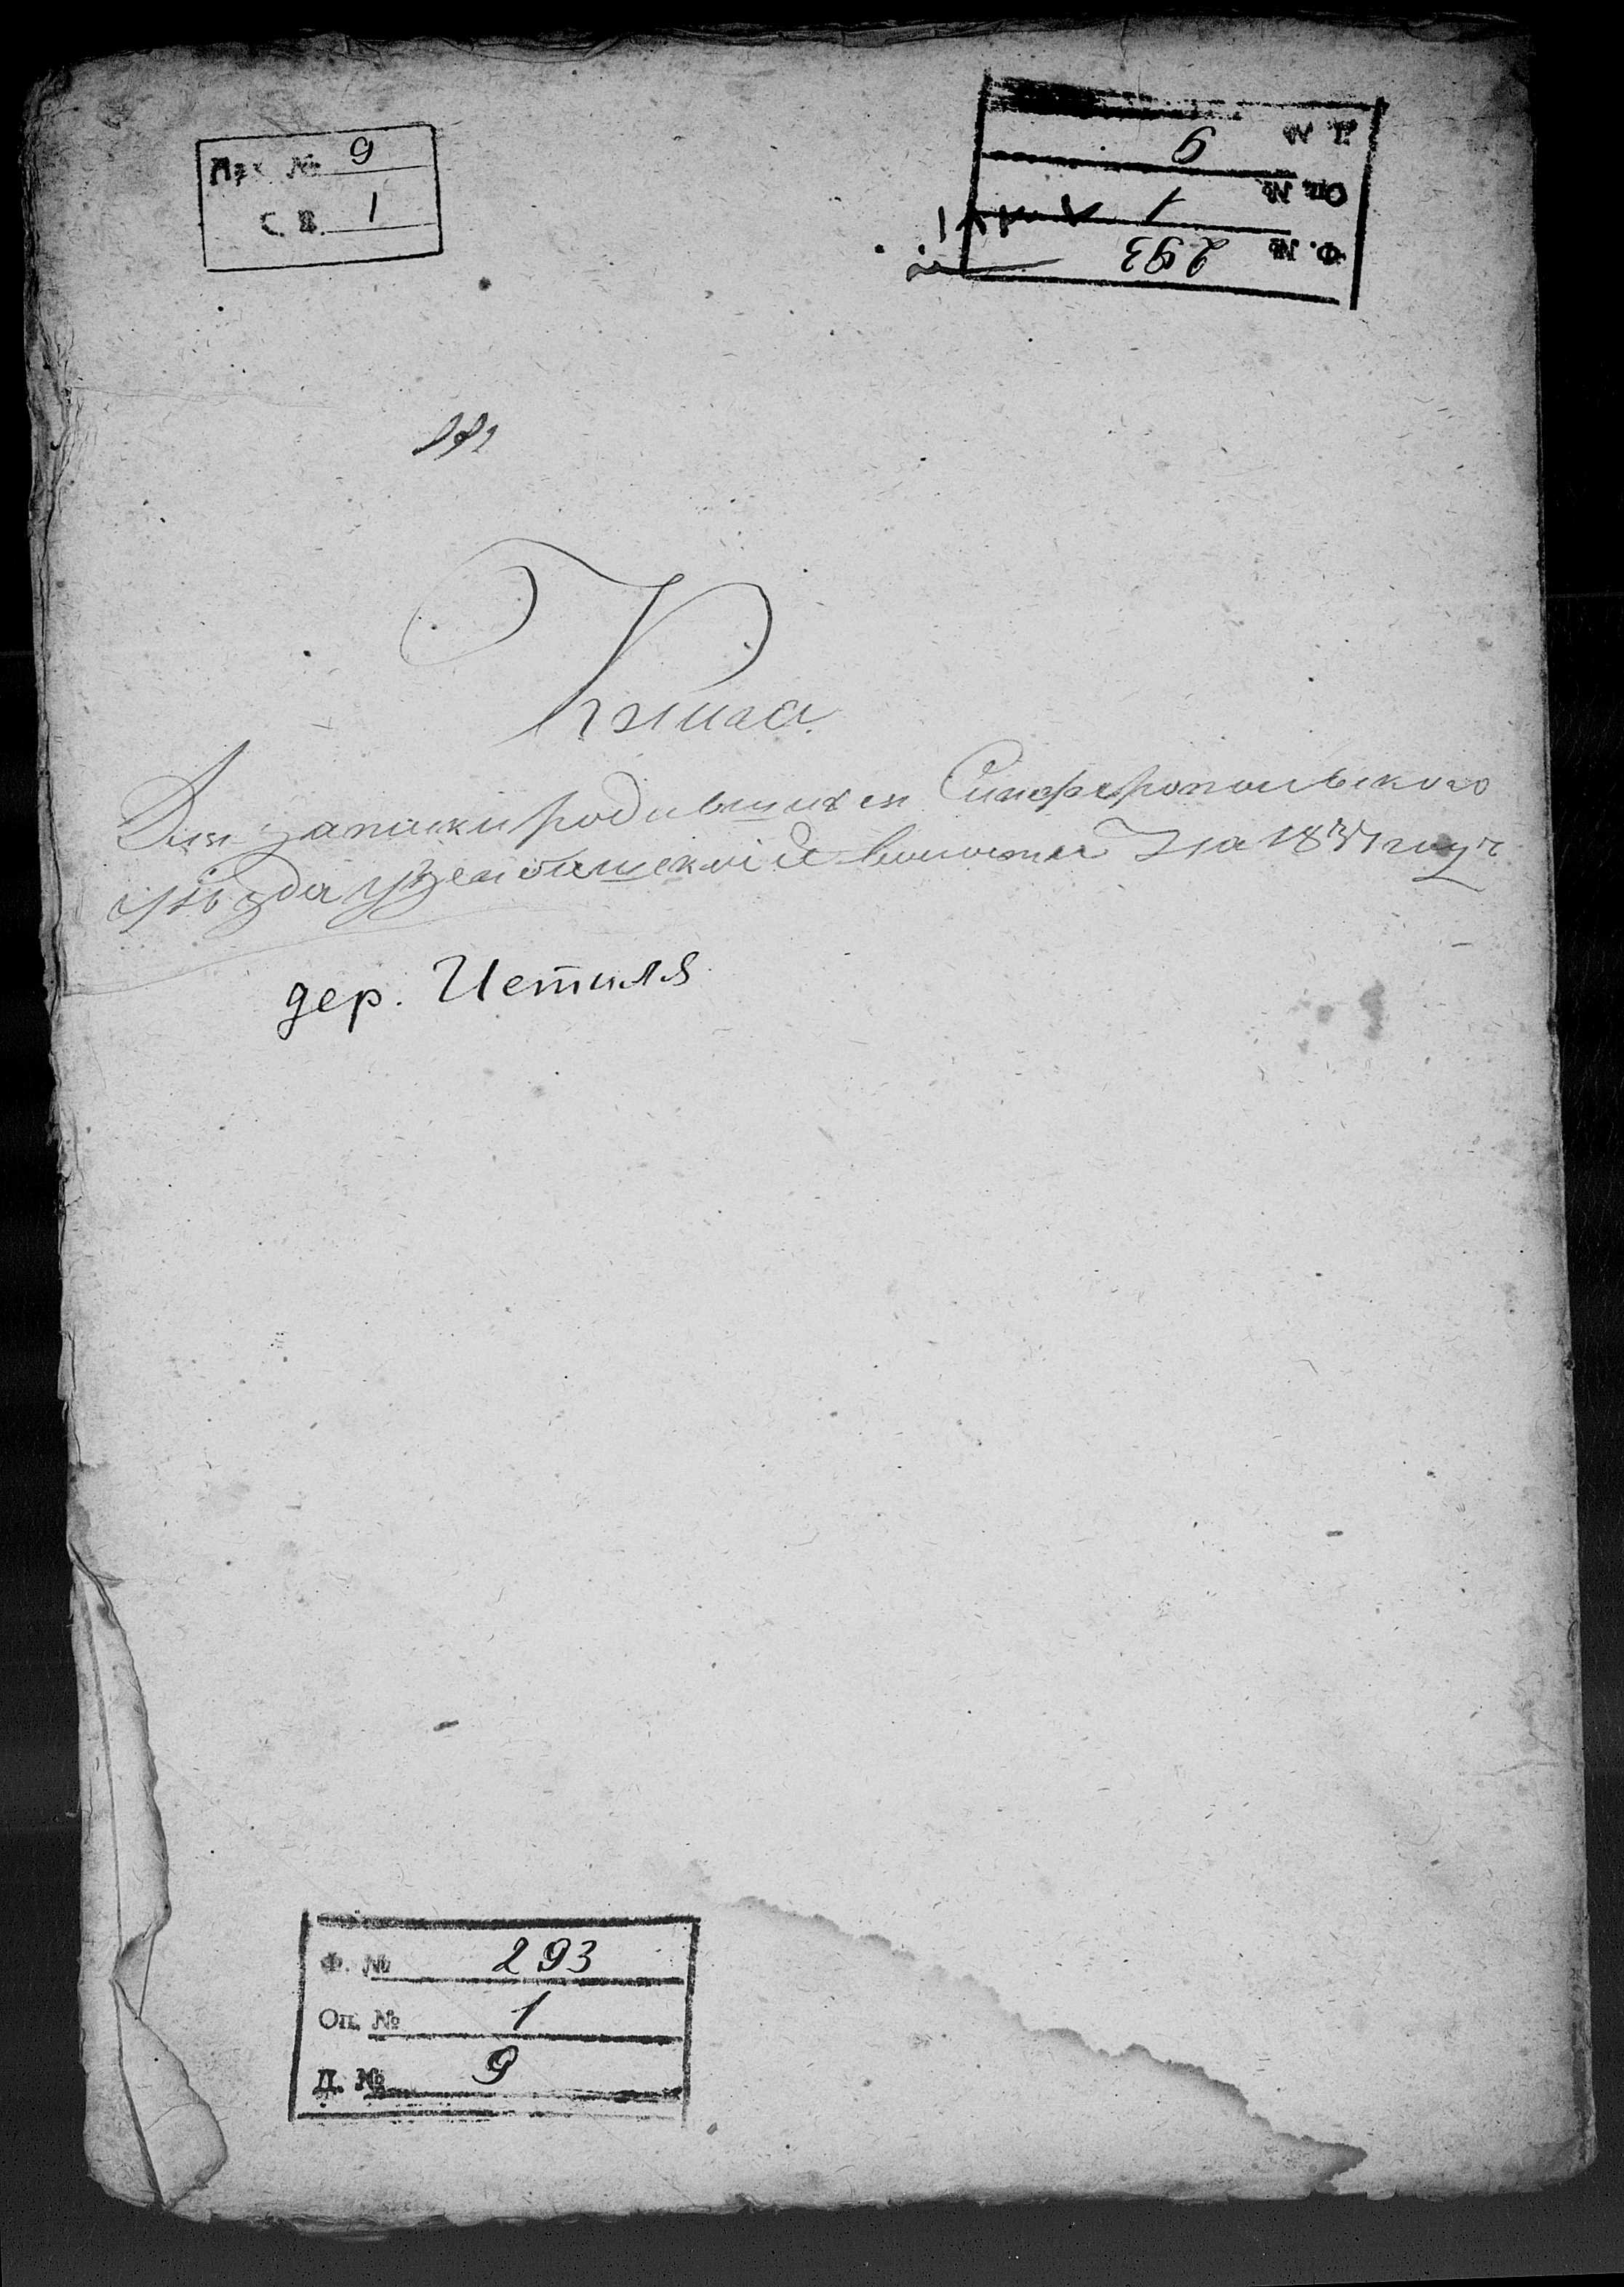 № 9
1
Д. № 9
Оп. № 1
Ф. № 293
Книга
Для записки родившихся Симферопольского
уѣзда Узенбашской волости На 1837 годъ
дер. Истиля
Ф. № 293
Оп. № 1
Д. № 9